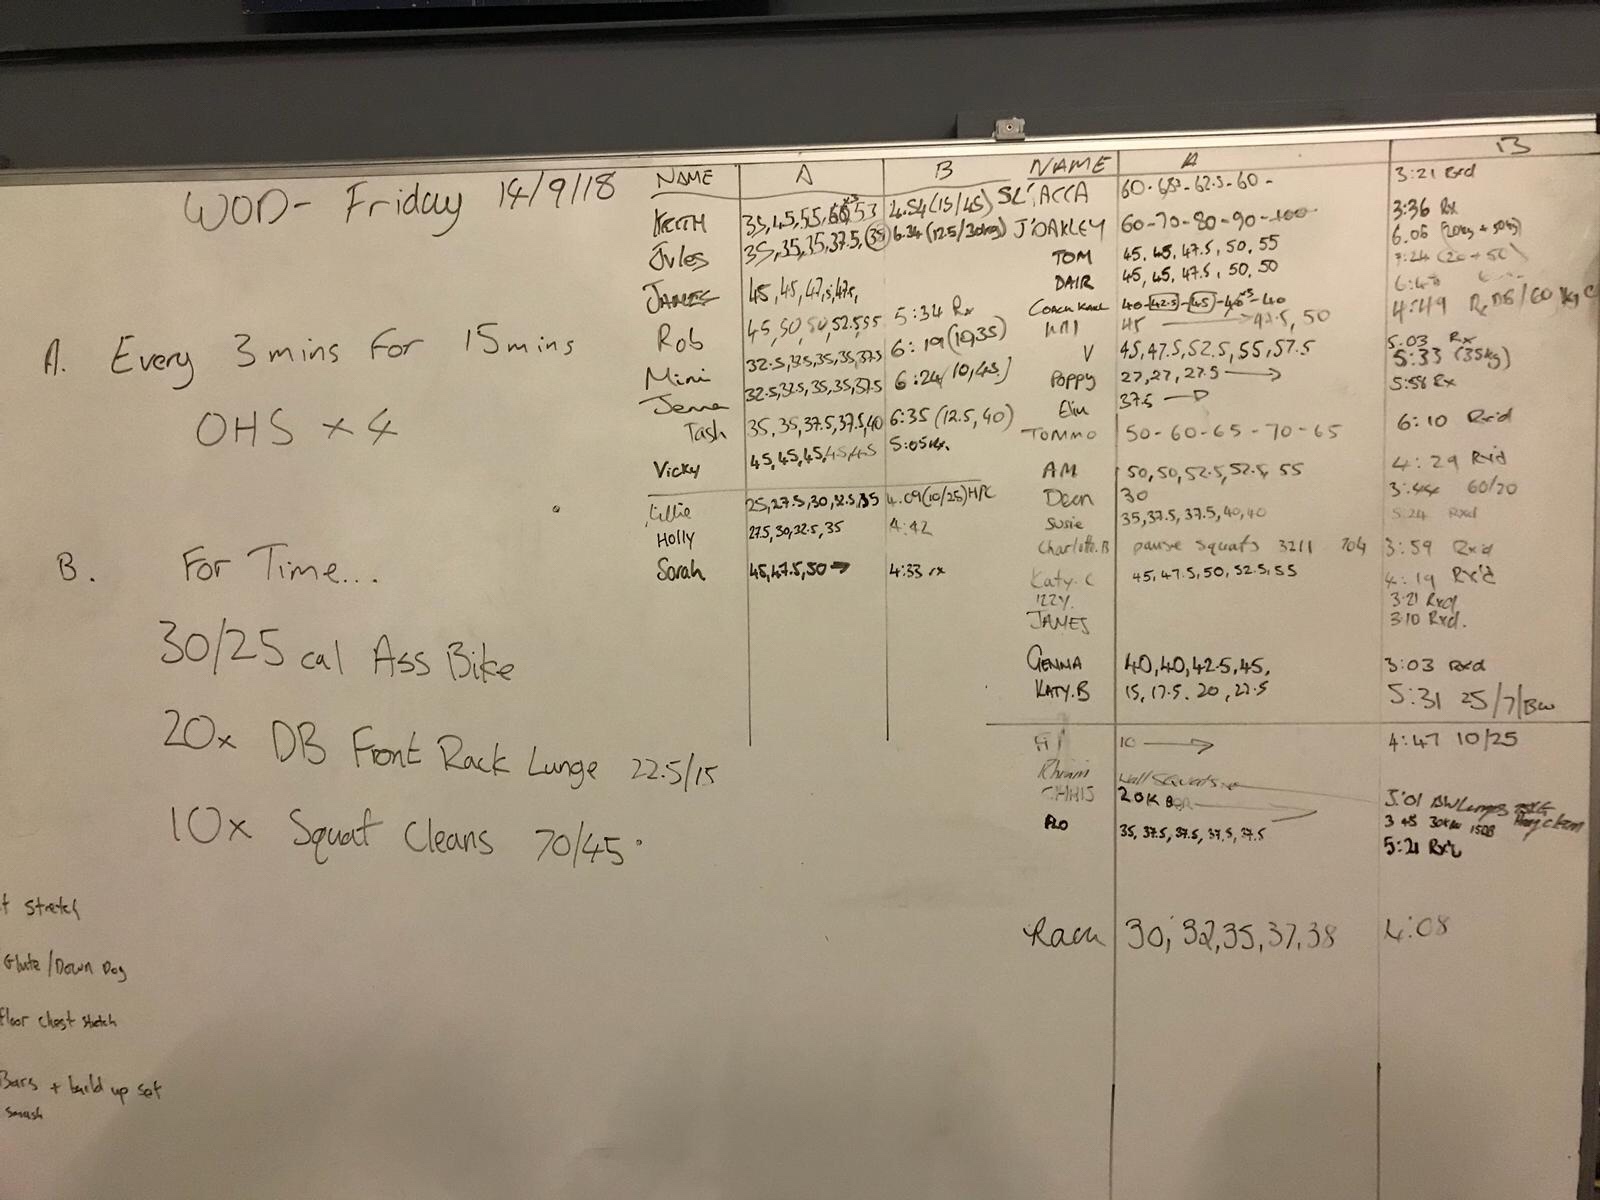 WOD- Friday 14/9/18
A. Every 3 mins for 15 mins
OHS x 4
B. For Time...
30/25 cal Ass Bike
20x DB Front Rack Lunge 22.5/15
10x Squat Cleans 70/45
t stretch
Glute/Down Dog
floor chest stretch
Bars + build up set
smash
NAME A B
KEITH 35,45,55,60 53 4.54 (15/45)
Jules 35,35,35,37.5,(35) 6.34 (12.5/30kg)
JAMES 45,45,47.5,47.5,
Rob 45,50,50,52.5,55 5:34 Rx
Mini 32.5,32.5,35,35,37.5 6:19 (10,35)
Jenna 32.5,32.5,35,35,37.5 6:24 (10,45)
Tash 35,35,37.5,37.5,40 6:35 (12.5,40)
Vicky 45,45,45,45,45 5:05 Rx.
Lillie 25,27.5,30,32.5,35 4.09 (10/25) HPC
Holly 27.5,30,32.5,35 4:42
Sarah 45,47.5,50 → 4:33 rx
NAME A B
ACCA 60- -62.5-60- 3:21 Rxd
J'OAKLEY 60-70-80-90-100 3:36 Rx
TOM 45,45,47.5,50,55 6.06 (20kg + 50kg)
DAIR 45,45,47.5,50,50 7:24 (20+50)
COACH 40-42.5-45- -40 4:49 Rx DB/60kg C
45 → 47.5, 50
V 45,47.5,52.5,55,57.5 5.03 Rx
Poppy 27,27,27.5 → 5:33 (35kg)
Elin 37.5 → 5:58 Rx
TOMMO 50-60-65-70-65 6:10 Rx'd
AM 50,50,52.5,52.5,55 4:29 Rx'd
Dean 30 3:44 60/20
Susie 35,37.5,37.5,40,40 5:24 Rxd
Charlotte.B pause squats 3211 70% 3:59 Rx'd
Katy.C 45,47.5,50,52.5,55 4:19 Rx'd
IZZY. 3:21 Rxd
JAMES 3:10 Rxd.
GEMMA 40,40,42.5,45, 3:03 Rxd
KATY.B 15,17.5,20,22.5 5:31 25/7/BW
Fi 10 → 4:47 10/25
wall squats
20K → 5:01 BW Lunges
FLO 35,37.5,37.5,37.5,37.5 5:21 Rx'd
Rach 30,32,35,37,38 4:08